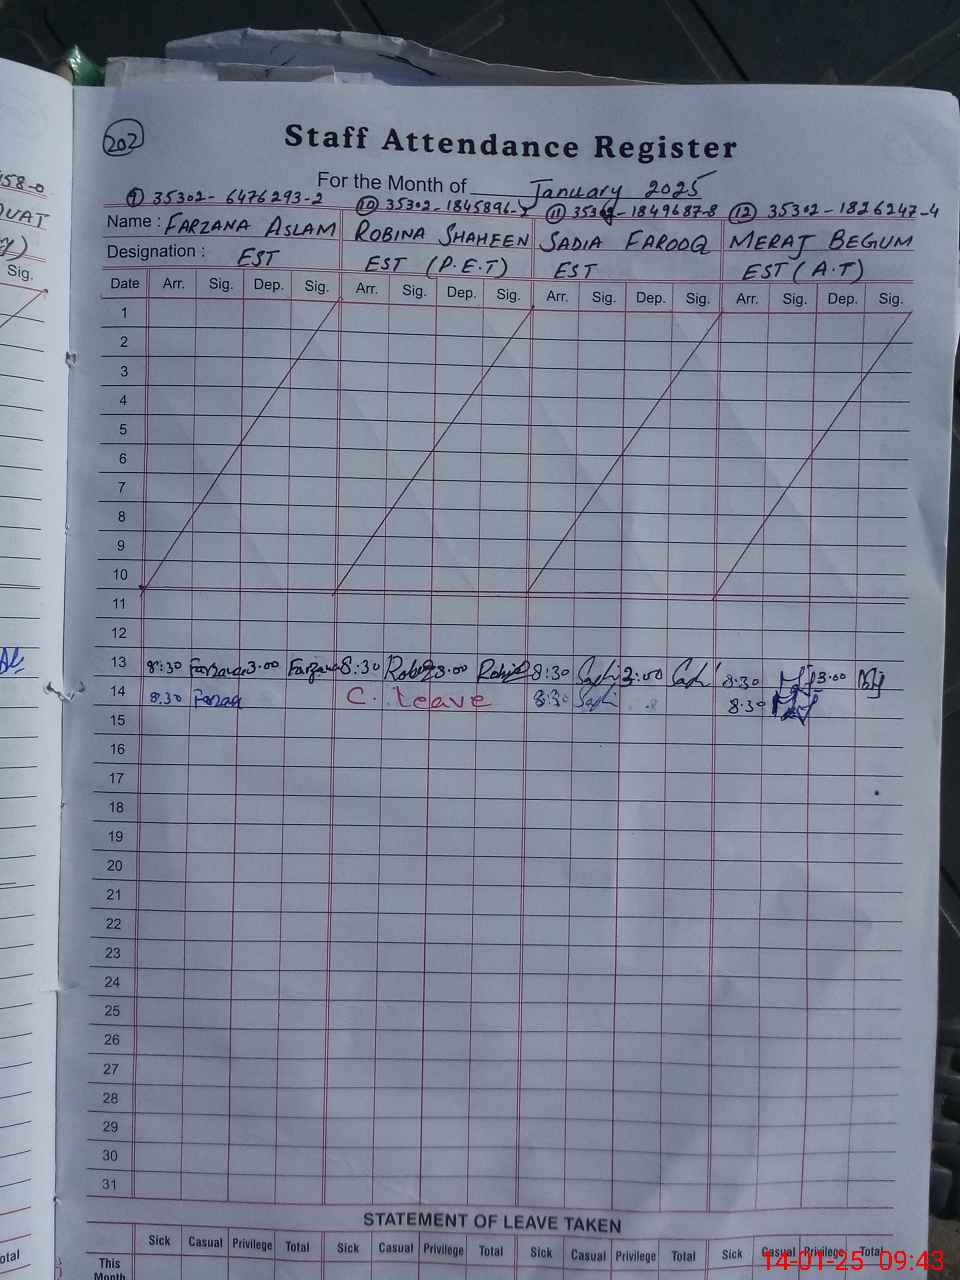 202
Staff Attendance Register
For the Month of January 2025
58-0
9 35302-6476293-2 10 35302-1845896- 11 35302-1849687-8 12 35302-1826247-4
Name : FARZANA ASLAM ROBINA SHAHEEN SADIA FAROOQ MERAJ BEGUM
Designation : EST EST (P.E.T) EST EST (A.T)
Sig.
Date Arr. Sig. Dep. Sig. Arr. Sig. Dep. Sig. Arr. Sig. Dep. Sig. Arr. Sig. Dep. Sig.
1
2
3
4
5
6
7
8
9
10
11
12
13 8:30 Farzana 3:00 Farzana 8:30 3:00 8:30 3:00 8:30 3:00
14 8:30 C. Leave 8:30 8:30
15
16
17
18
19
20
21
22
23
24
25
26
27
28
29
30
31
STATEMENT OF LEAVE TAKEN
Sick Casual Privilege Total Sick Casual Privilege Total Sick Casual Privilege Total Sick Casual Privilege Total
This
Month
otal
14-01-25 09:43